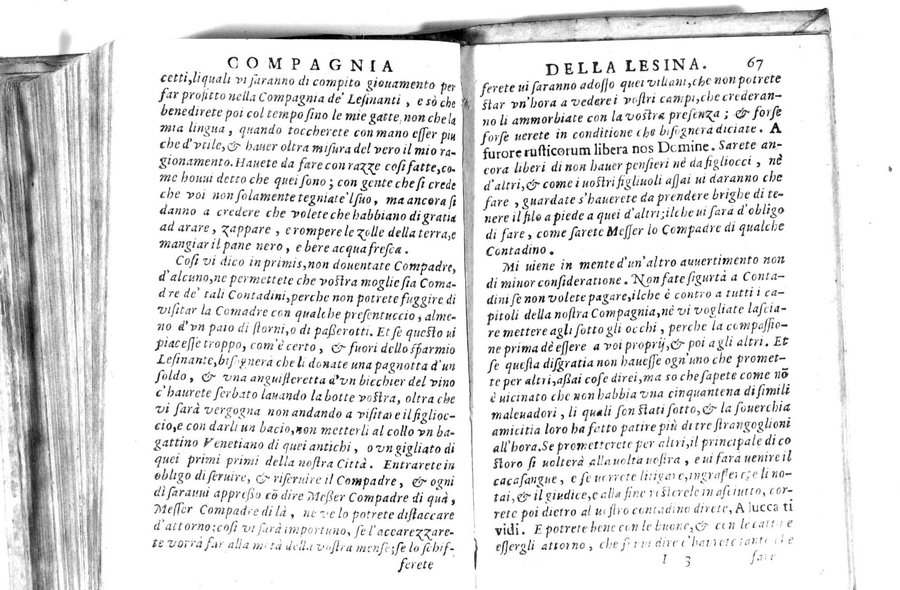 COMPAGNIA
cetti, li quali vi saranno di compito giouamento per
far profitto nella Compagnia de' Lesinanti, e sò che
benedirete poi col tempo sino le mie gatte, non che la
mia lingua, quando toccherete con mano esser piu
che d'vtile, & hauer oltra misura del vero il mio ra-
gionamento. Hauete da fare con razze cosi fatte, co-
me houui detto che quei sono; con gente che si crede
che voi non solamente tegniate l'suo, ma ancora si
danno a credere che volete che habbiano di gratia
ad arare, zappare, e rompere le zolle della terra, e
mangiar il pane nero, e bere acqua fresca.
Cosi vi dico in primis, non douentate Compadre,
d'alcuno, ne permettete che vostra moglie sia Coma
dre de' tali Contadini, perche non potrete fuggire di
visitar la Comadre con qualche presentuccio, alme-
no d'vn paio di storni, o di passerotti. Et se questo ui
piacesse troppo, com'è certo, & fuori dello sparmio
Lesinante, bisognerà che li donate una pagnotta d'un
soldo, & una anguisteretta d'un bicchier del vino
c'haurete serbato lauando la botte vostra, oltra che
vi sarà vergogna non andando a visitare il figlioc-
cio, e con darli un bacio, non metterli al collo vn ba-
gattino Venetiano di quei antichi, o vn gigliato di
quei primi primi della nostra Città. Entrarete in
obligo di seruire, & riseruire il Compadre, & ogni
dì sarauui appresso cō dire Messer Compadre di quà,
Messer Compadre di là, ne ve lo potrete distaccare
d'attorno; cosi vi sarà importuno, se l'accarezzare-
te vorrà far alla metà della vostra mense; se lo schif-
ferete
DELLA LESINA. 67
ferete ui saranno adosso quei villani, che non potrete
star vn'hora a vedere i vostri campi, che crederan-
no li ammorbiate con la vostra presenza; & forse
forse uerete in conditione che bisognerà diciate. A
furore rusticorum libera nos Domine. Sarete an-
cora liberi di non hauer pensieri nè da figliocci, nè
d'altri, & come i uostri figliuoli assai ui daranno che
fare, guardate s'hauerete da prendere brighe di te-
nere il filo a piede a quei d'altri; ilche ui sara d'obligo
di fare, come sarete Messer lo Compadre di qualche
Contadino.
Mi uiene in mente d'un'altro auuertimento non
di minor consideratione. Non fate sigurtà a Conta-
dini se non volete pagare, ilche è contro a tutti i ca-
pitoli della nostra Compagnia, nè vi vogliate lascia-
re mettere agli sotto gli occhi, perche la compassio-
ne prima dè essere a voi proprij, & poi a gli altri. Et
se questa disgratia non hauesse ogn'uno che promet-
te per altri, assai cose direi, ma so che sapete come nō
è uicinato che non habbia una cinquantena di simili
maleuadori, li quali son stati sotto, & la souerchia
amicitia loro ha fatto patire più di tre strangoglioni
all'hora. Se prometterete per altri, il principale di co
storo si uolterà alla uolta uostra, e ui fara uenire il
cacasangue, e se uorrete litigare, ingrasserete li no-
tai, & il giudice, e alla fine resterete in asciutto, cor-
rete poi dietro al uostro contadino direte, A lucca ti
vidi. E potrete bene con le buone, & con le cattiue
essergli attorno, che se ui dire c'haurete tanto che
I 3 fare